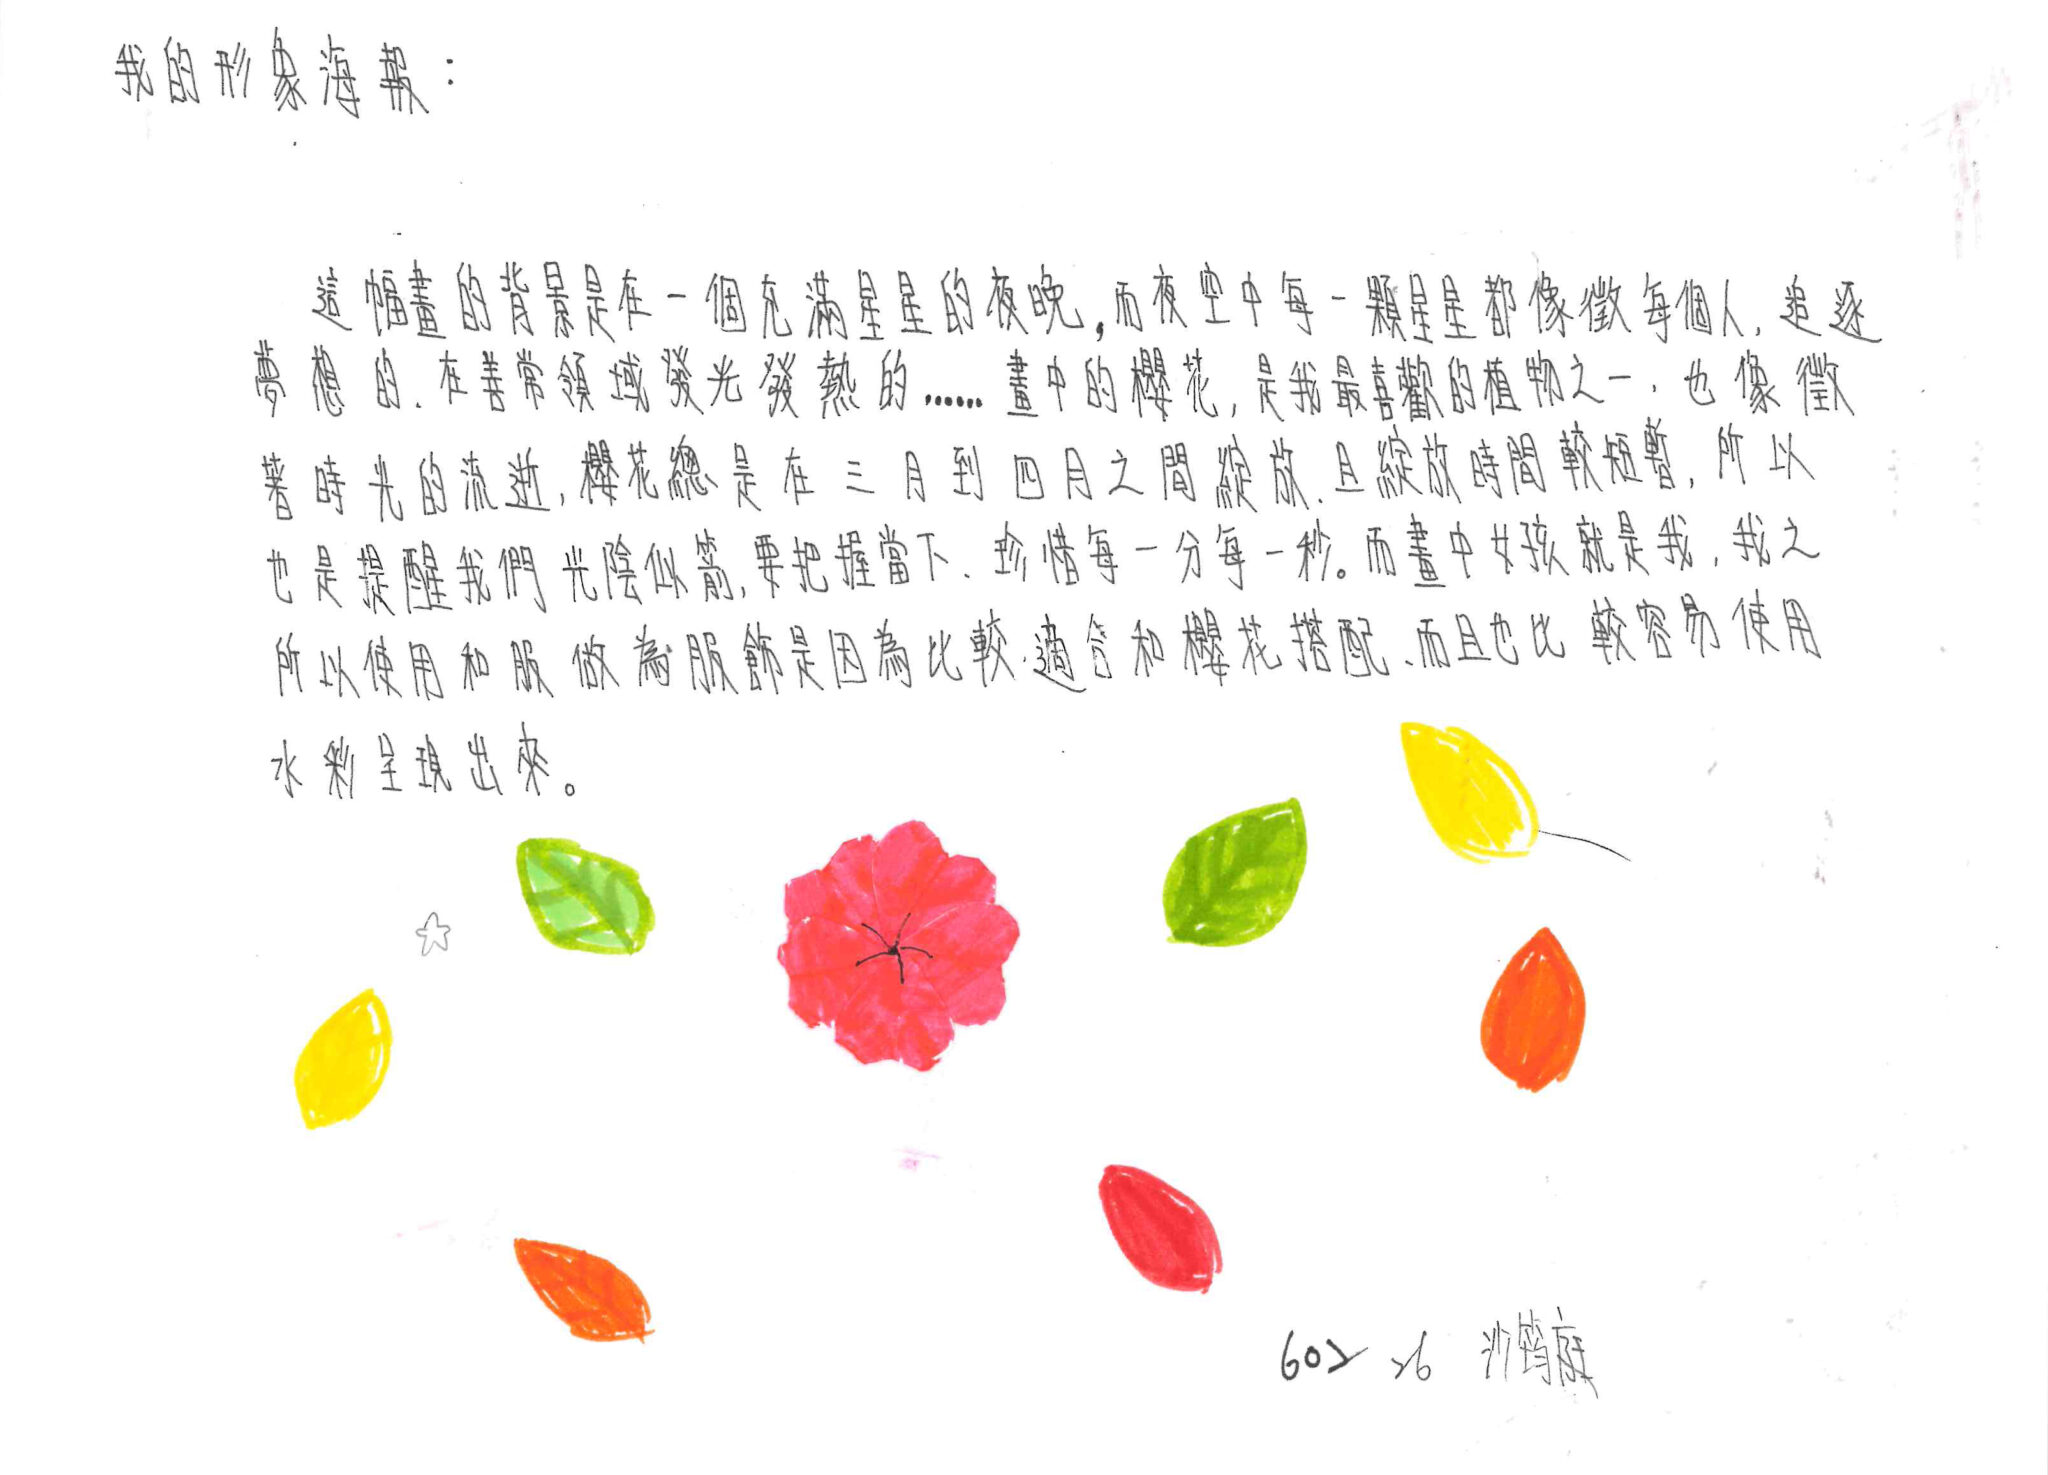 我的形象海報：
這幅畫的背景是在一個充滿星星的夜晚，而夜空中每一顆星星都像徵每個人，追逐
夢想的、在善常領域發光發熱的……畫中的櫻花，是我最喜歡的植物之一，也像徵
著時光的流逝，櫻花總是在三月到四月之間綻放，且綻放時間較短暫，所以
也是提醒我們光陰似箭，要把握當下、珍惜每一分每一秒。而畫中女孩就是我，我之
所以使用和服做為服飾是因為比較適合和櫻花搭配、而且也比較容易使用
水彩呈現出來。
602 26 沙筠庭